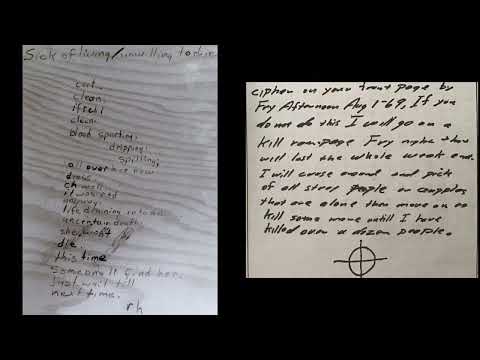 Sick of living/unwilling to die
cut.
clean.
if red/
clean.
blood spurting,
dripping,
spilling;
all over her new
dress.
oh well
it was red
anyway.
life draining into an
uncertain death.
she won't
die
this time
Someone ll find her.
Just wait till
next time.
rh
cipher on your front page by
Fry Afternoon Aug 1-69, If you
do not do this I will go on a
kill rampage Fry night that
will last the whole week end.
I will cruse around and pick
of all stray people or coupples
that are alone then move on to
kill some more untill I have
killed over a dozen people.